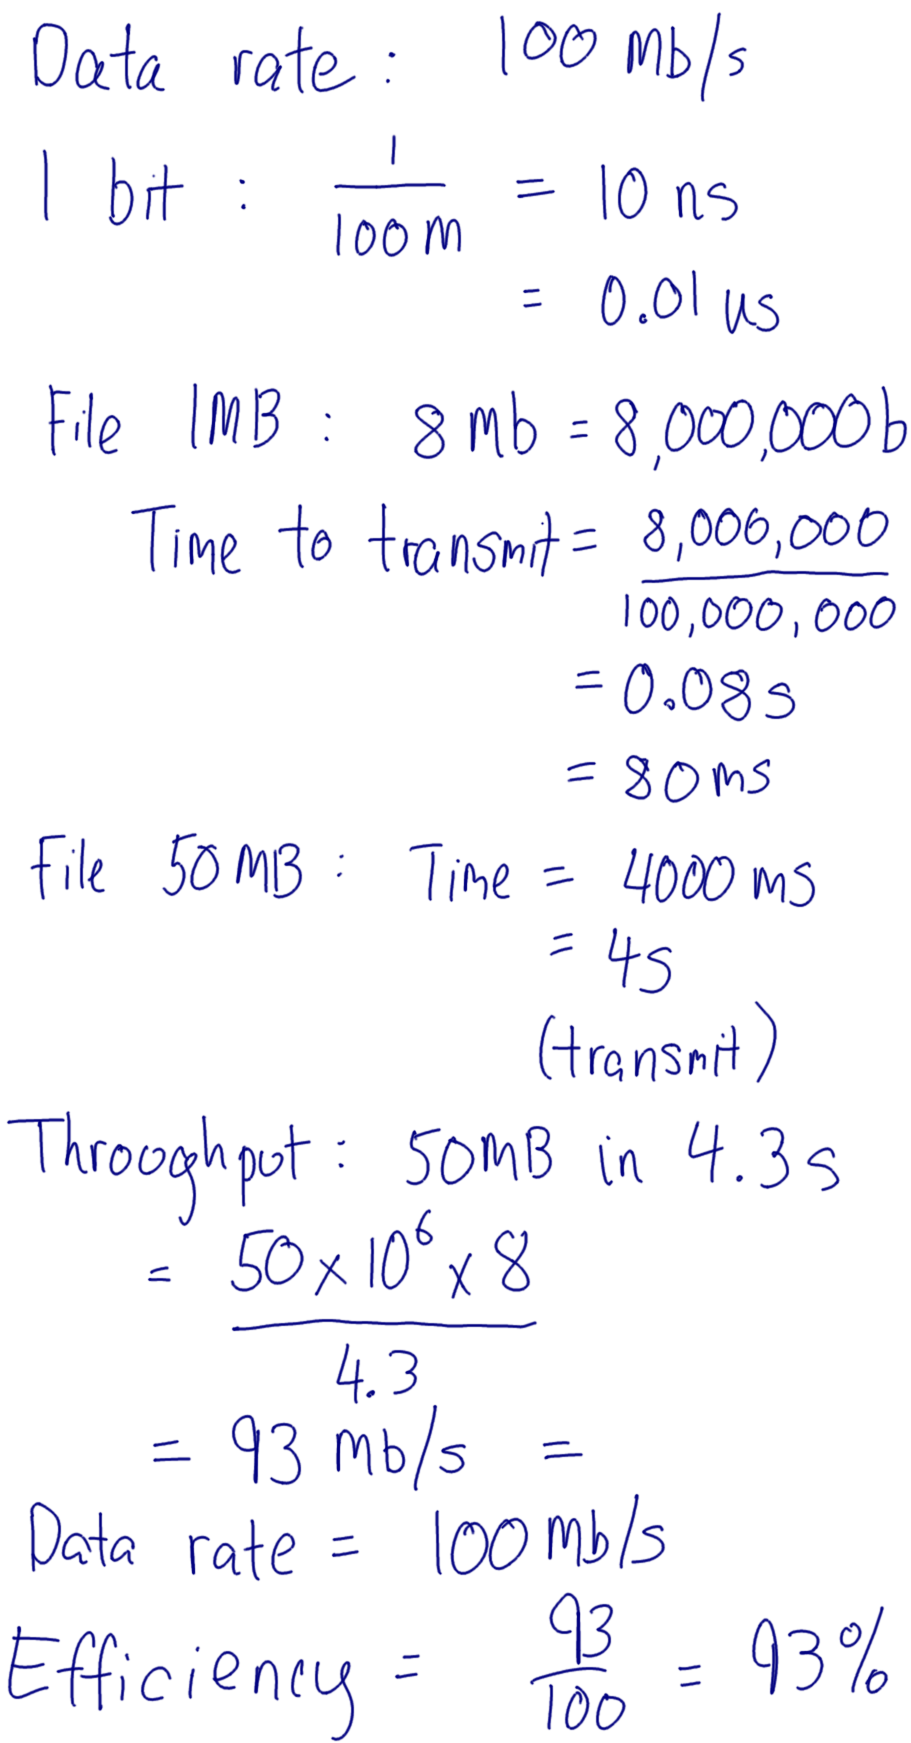 Data rate : 100 Mb/s
1 bit : 1/100M = 10 ns
= 0.01 us
File 1MB : 8 Mb = 8,000,000b
Time to transmit = 8,000,000/100,000,000
= 0.08s
= 80ms
File 50MB : Time = 4000 ms
= 4s
(transmit)
Throughput : 50MB in 4.3s
= 50 x 10⁶ x 8/4.3
= 93 Mb/s =
Data rate = 100 Mb/s
Efficiency = 93/100 = 93%